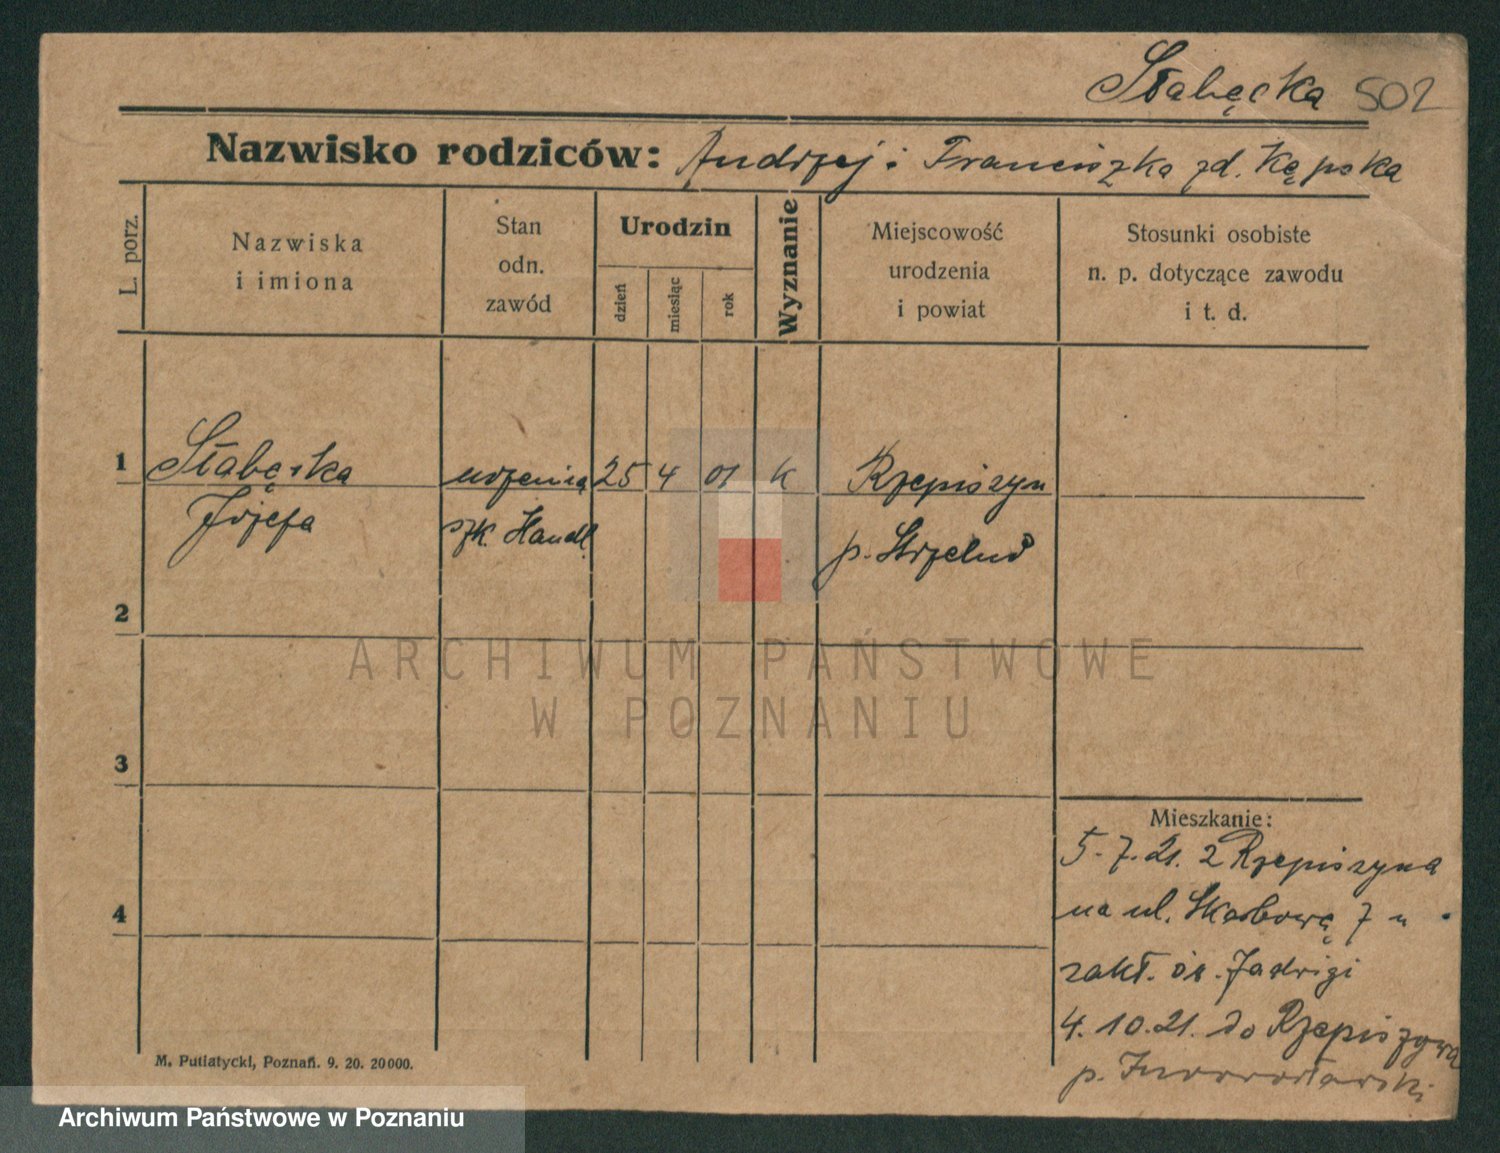 Słabęcka 502
Nazwisko rodziców: Andrzej i Franciszka zd. Kępska
L. porz.
Nazwiska
i imiona
Stan
odn.
zawód
Urodzin
dzień
miesiąc
rok
Wyznanie
Miejscowość
urodzenia
i powiat
Stosunki osobiste
n. p. dotyczące zawodu
i t. d.
1 Słabęcka uczenica 25 4 01 K Rzepiszyn
Józefa szk. Handl. p. Strzelno
2
3
4
Mieszkanie:
5.7.21. z Rzepiszyna
na ul. Skarbową 7 u
zakł. św. Jadwigi
4.10.21. do Rzepiszyna
p. Inowrocławski
M. Putiatycki, Poznań. 9. 20. 20000.
ARCHIWUM PAŃSTWOWE
W POZNANIU
Archiwum Państwowe w Poznaniu